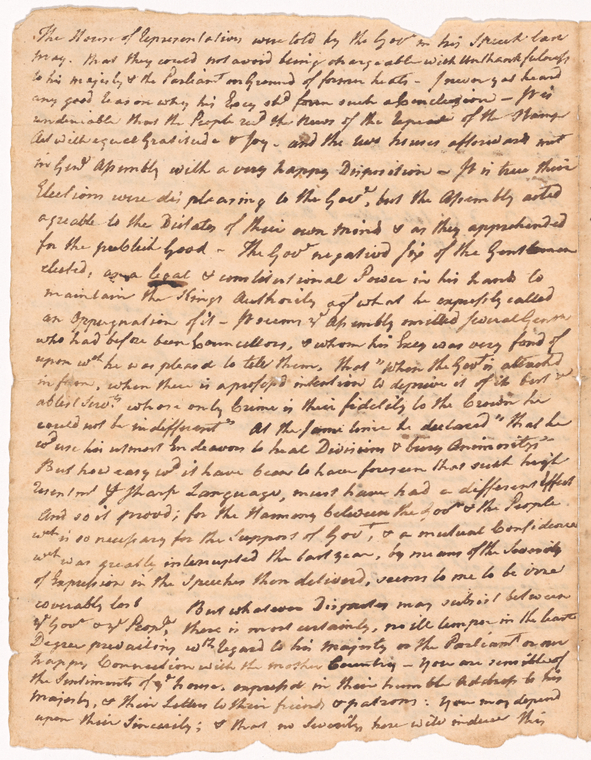 The House of Representatives were told by the Govr in his Speech last
may. that they could not avoid being chargeable with Unthankfulness
to his majesty & the Parliamt on Ground of former heats - I never yet heard
any good reason why his Excy shd form such a Conclusion - It is
undeniable that the People recd the News of the Repeal of the Stamp
Act with equal Gratitude & Joy - and the two houses afterwards met
in Genl Assembly with a very happy Disposition - It is true their
Elections were displeasing to the Govr, but the Assembly acted
agreable to the Dictates of their own minds & as they apprehended
for the publick Good - The Govr negatived six of the Gentlemen
elected, as a legal & constitutional Power in his hands to
maintain the Kings Authority agt what he expressly called
an Oppugnation of it - It seems ye Assembly omitted several Gentn
who had before been Councellors, & whom his Excy was very fond of
upon wch he was pleasd to tell them, that "when the Govt is attacked
in form, when there is a professd intention to deprive it of its best &
ablest Servts whose only Crime is their fidelity to the Crown he
could not be indifferent" At the same time he declared "that he
wd use his utmost Endeavors to heal Divisions & bury Animosities"
But how easy wd it have been to have foreseen that such high
Resentmt & Sharp Language, must have had a different Effect
And so it provd; for the Harmony between the Govr & the People
wch is so necessary for the Support of Govt, & a mutual Confidence
wch was greatly interrupted the last year, by means of the Severity
of Expression in the Speeches then delivered, seems to me to be irre
coverably lost But whatever Disputes may subsist between
ye Govr & ye People, there is most certainly, no ill temper in the least
Degree prevailing with regard to his majesty or the Parliamt or our
happy Connection with the mother Country - You are sensible of
the Sentiments of ye house, expressd in their humble Address to his
majesty, & their Letters to their friends & patrons: You may depend
upon their Sincerity; & that no Severity here will induce this